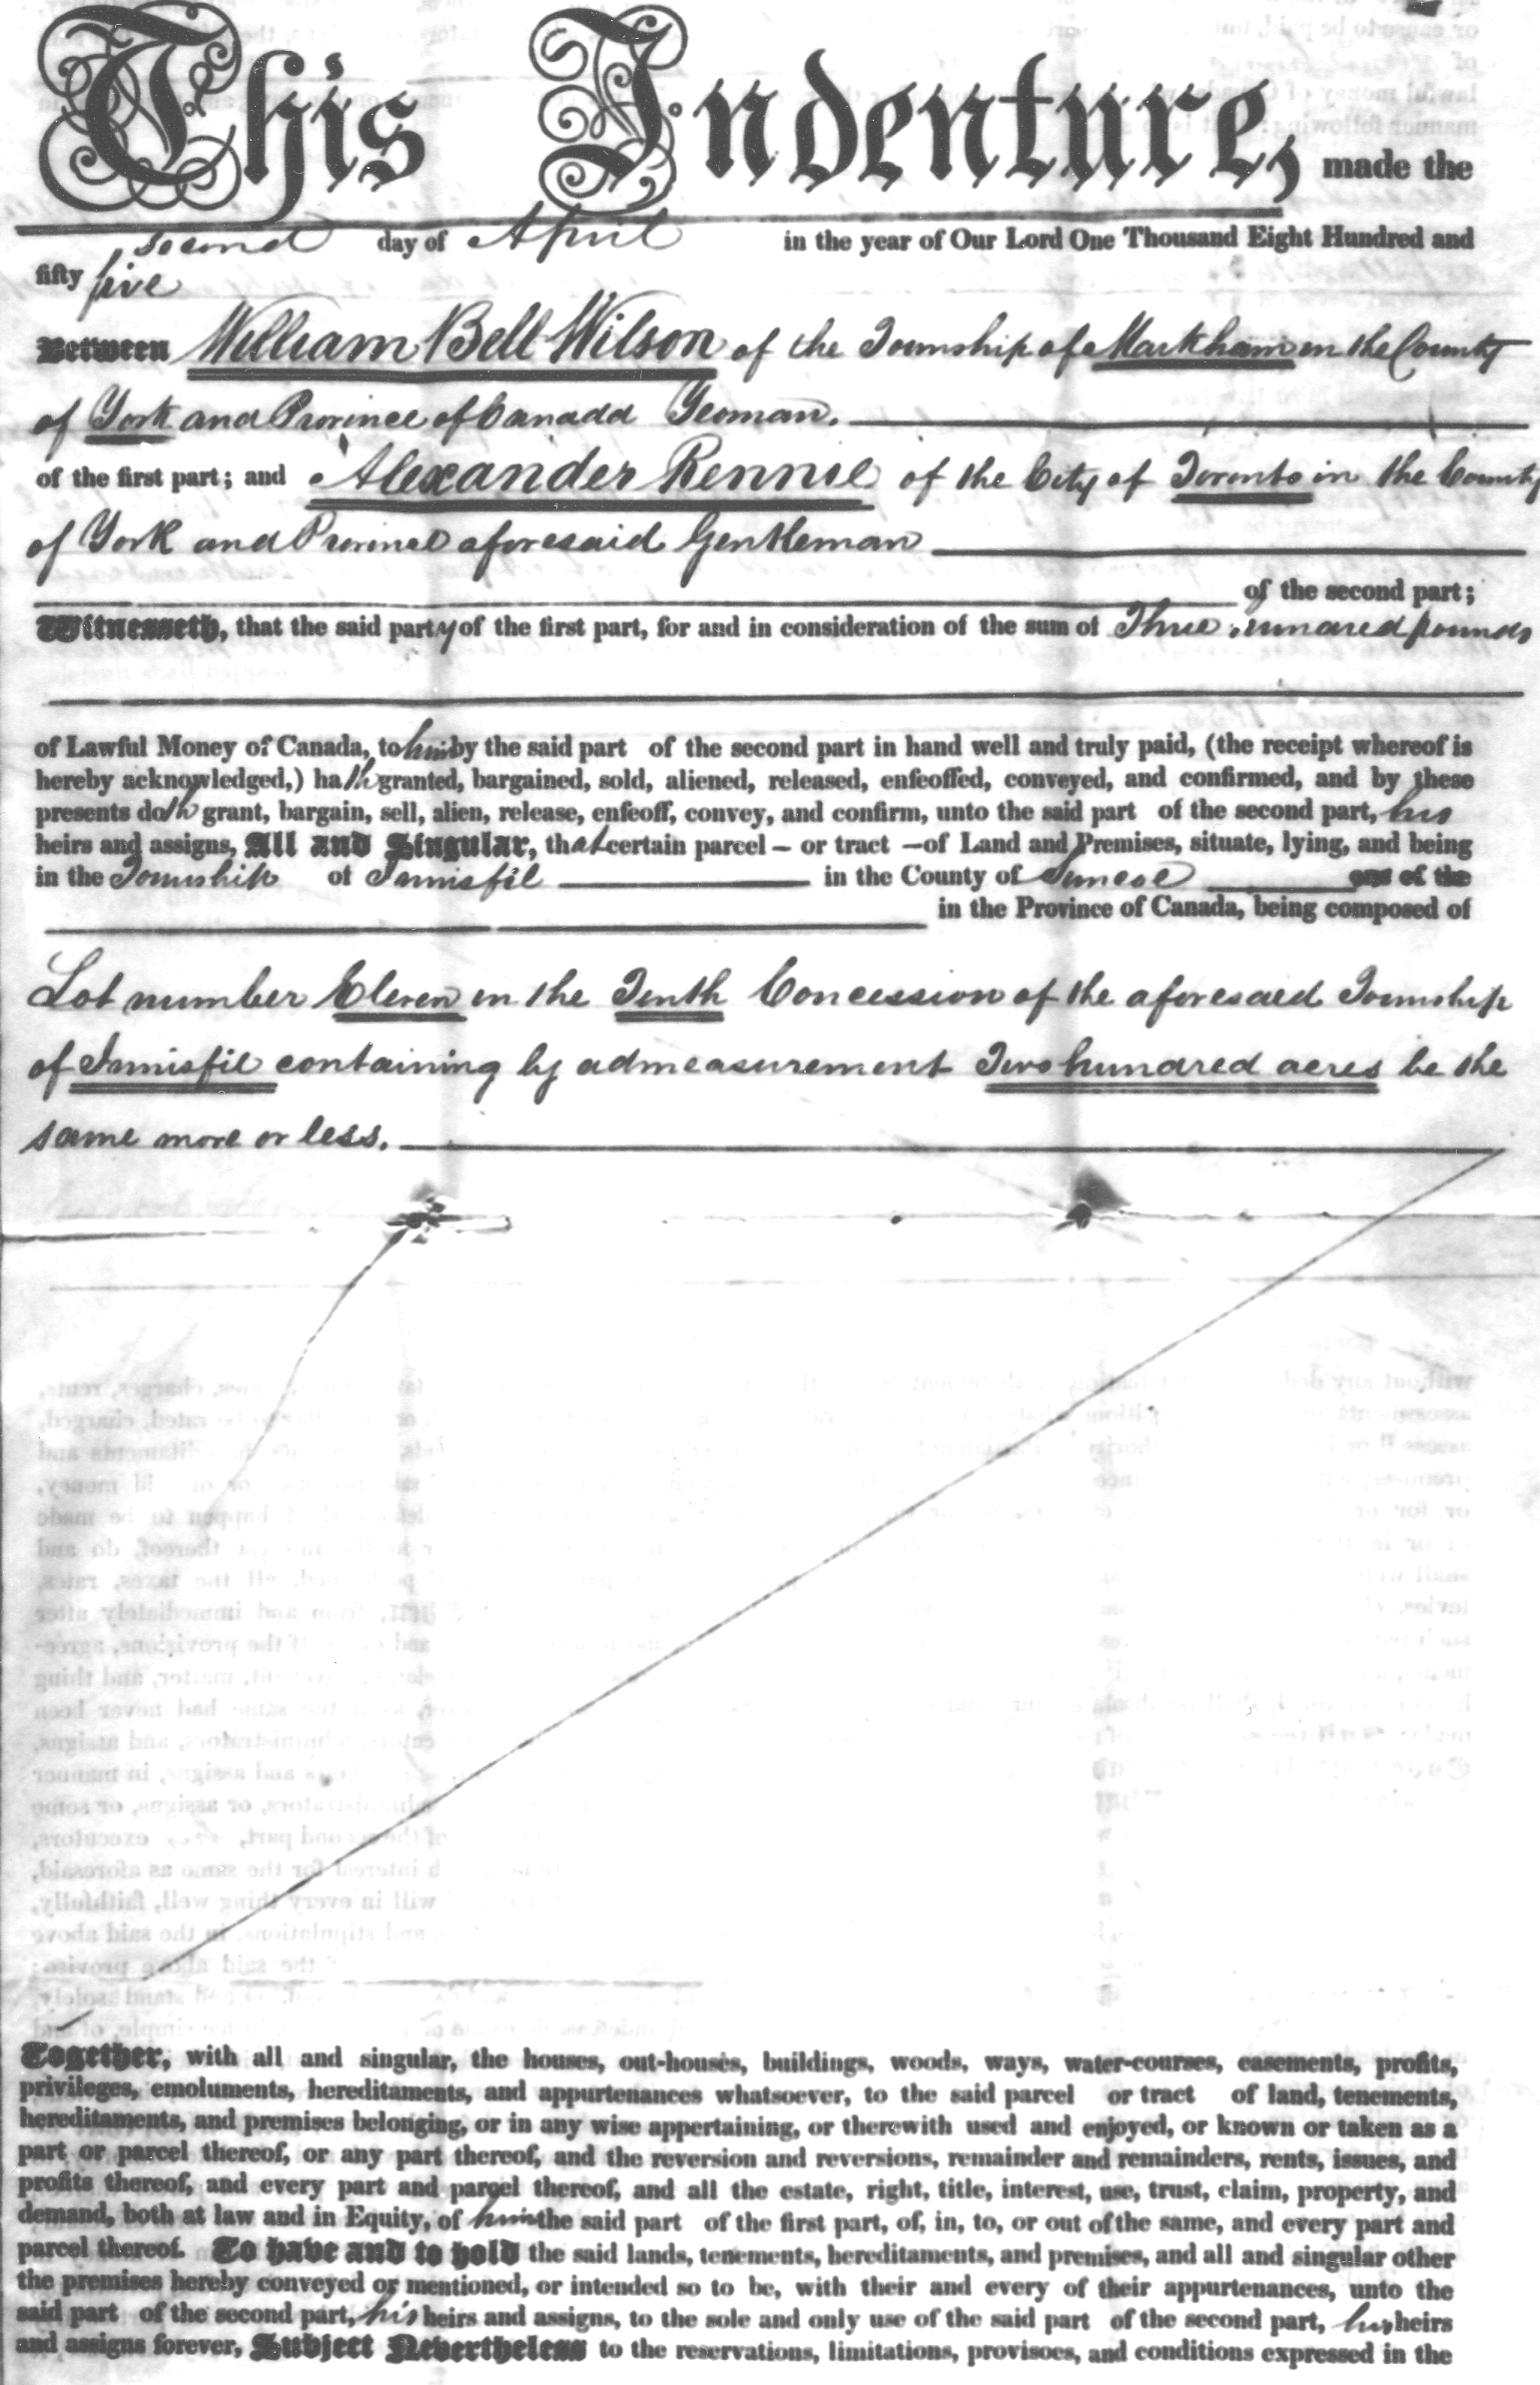 This Indenture, made the
second day of April in the year of Our Lord One Thousand Eight Hundred and
fifty five
Between William Bell Wilson of the Township of Markham in the County
of York and Province of Canada Yeoman.
of the first part; and Alexander Rennie of the City of Toronto in the County
of York and Province aforesaid Gentleman
of the second part;
Witnesseth, that the said party of the first part, for and in consideration of the sum of Three hundred pounds
of Lawful Money of Canada, to him by the said part of the second part in hand well and truly paid, (the receipt whereof is
hereby acknowledged,) hath granted, bargained, sold, aliened, released, enfeoffed, conveyed, and confirmed, and by these
presents doth grant, bargain, sell, alien, release, enfeoff, convey, and confirm, unto the said part of the second part, his
heirs and assigns, All and Singular, that certain parcel – or tract – of Land and Premises, situate, lying, and being
in the Township of Innisfil in the County of Simcoe one of the
in the Province of Canada, being composed of
Lot number Eleven in the Tenth Concession of the aforesaid Township
of Innisfil containing by admeasurement Two hundred acres be the
same more or less.
Together, with all and singular, the houses, out-houses, buildings, woods, ways, water-courses, easements, profits,
privileges, emoluments, hereditaments, and appurtenances whatsoever, to the said parcel or tract of land, tenements,
hereditaments, and premises belonging, or in any wise appertaining, or therewith used and enjoyed, or known or taken as a
part or parcel thereof, or any part thereof, and the reversion and reversions, remainder and remainders, rents, issues, and
profits thereof, and every part and parcel thereof, and all the estate, right, title, interest, use, trust, claim, property, and
demand, both at law and in Equity, of him the said part of the first part, of, in, to, or out of the same, and every part and
parcel thereof. To have and to hold the said lands, tenements, hereditaments, and premises, and all and singular other
the premises hereby conveyed or mentioned, or intended so to be, with their and every of their appurtenances, unto the
said part of the second part, his heirs and assigns, to the sole and only use of the said part of the second part, his heirs
and assigns forever, Subject Nevertheless to the reservations, limitations, provisoes, and conditions expressed in the